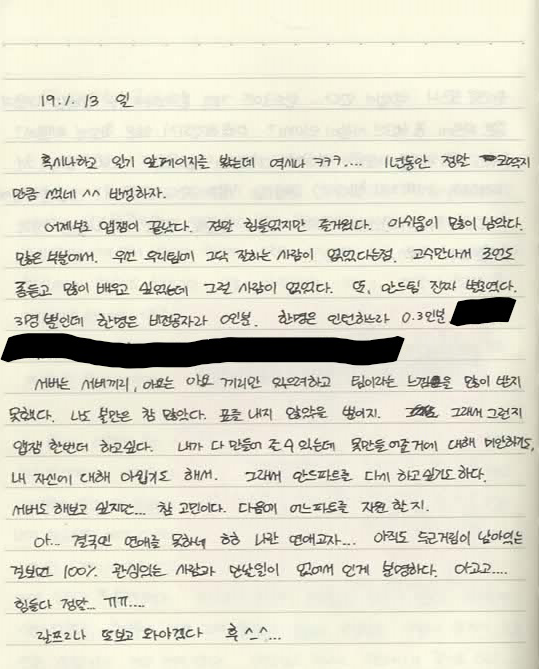 19.1.13 일
혹시나하고 일기 앞페이지를 봤는데 역시나 ㅋㅋㅋ.... 1년동안 정말 코딱지
만큼 썼네 ^^ 반성하자.
어제부로 앱잼이 끝났다. 정말 힘들었지만 즐거웠다. 아쉬움이 많이 남았다.
많은 부분에서. 우선 우리팀에 그닥 잘하는 사람이 없었다는점. 고수만나서 조언도
좀듣고 많이 배우고 싶었는데 그런 사람이 없었다. 또, 안드팀 진짜
3명 뿐인데 한명은 비전공자라 0인분. 한명은 인턴하느라 0.3인분
서버는 서버끼리, 아요는 아요 끼리만 있으려하고 팀이라는 느낌을 많이 받지
못했다. 나도 불만은 참 많았다. 표를 내지 않았을 뿐이지. 그래서 그런지
앱잼 한번더 하고싶다. 내가 다 만들어 줄수 있는데 못만들어줄거에 대해 미안하기도,
내 자신에 대해 아쉽기도 해서. 그래서 안드파트를 다시 하고싶기도 하다.
서버도 해보고 싶지만... 참 고민이다. 다음에 어느파트를 지원 할지.
아... 결국민 연애를 못하네 ㅎㅎ 나란 연애고자... 아직도 두근거림이 남아있는
걸보면 100% 관심있는 사람과 만날일이 없어서 인게 분명하다. 아고고....
힘들다 정말... ㅠㅠ....
랄프2나 또보고 와야겠다 후 ^_^...